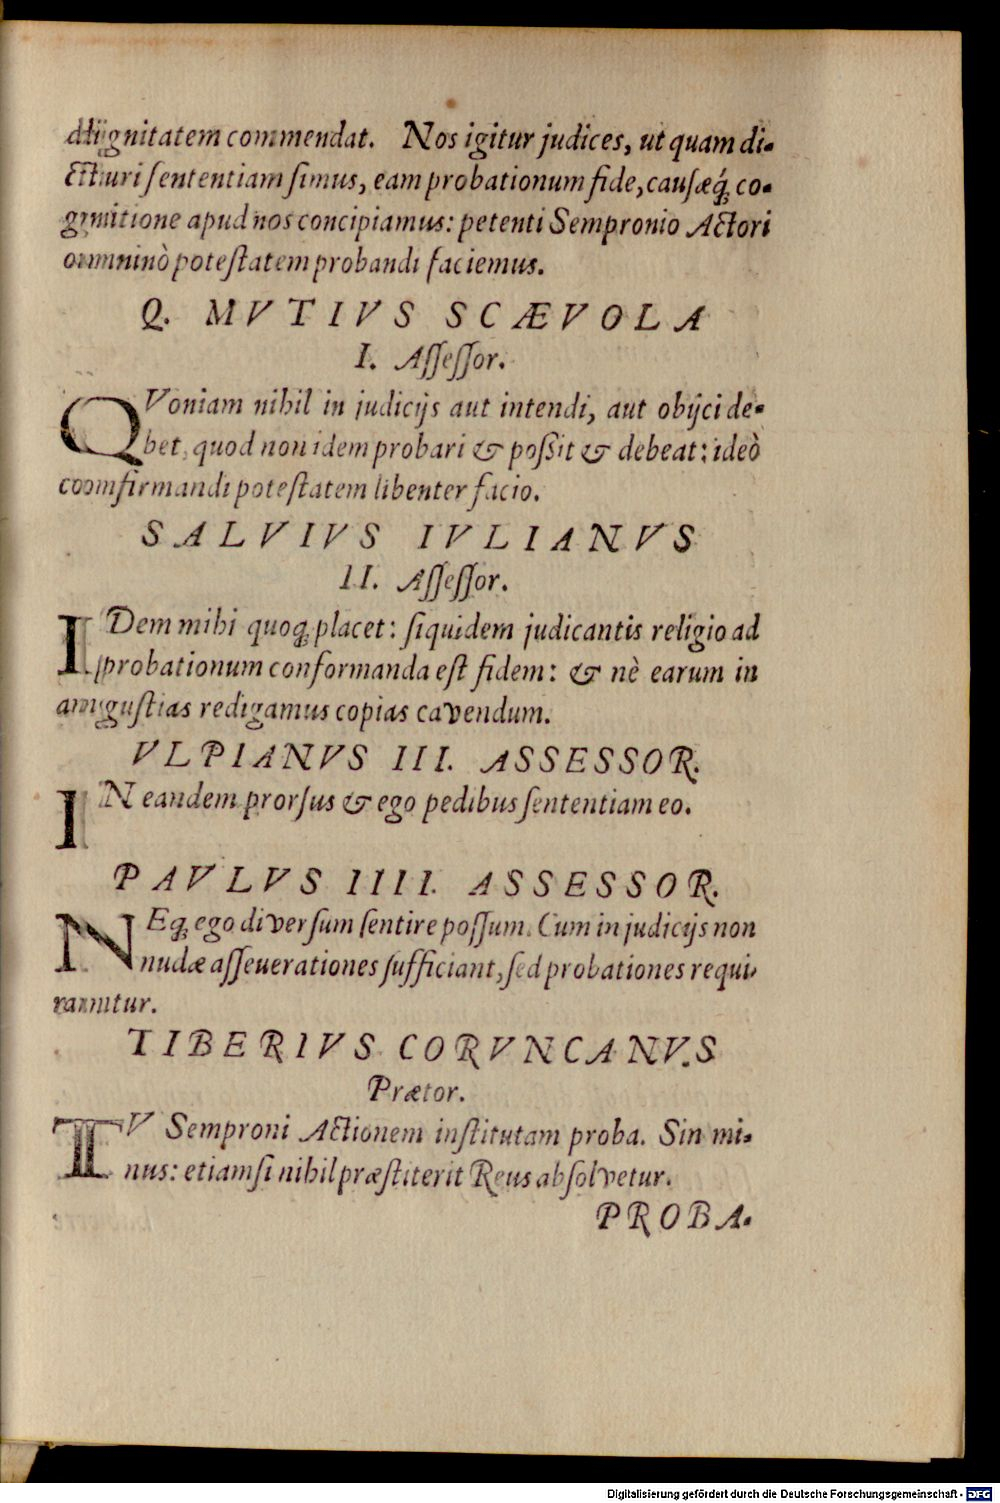 dignitatem commendat. Nos igitur judices, ut quam di-
cturi sententiam simus, eam probationum fide, causæq́; co-
gnitione apud nos concipiamus: petenti Sempronio Actori
omninò potestatem probandi faciemus.
Q. MVTIVS SCÆVOLA
I. Assessor.
QVoniam nihil in judicijs aut intendi, aut obijci de-
bet, quod non idem probari & possit & debeat: ideò
confirmandi potestatem libenter facio.
SALVIVS IVLIANVS
II. Assessor.
IDem mihi quoq; placet: siquidem judicantis religio ad
probationum conformanda est fidem: & nè earum in
angustias redigamus copias cavendum.
VLPIANVS III. ASSESSOR.
IN eandem prorsus & ego pedibus sententiam eo.
PAVLVS IIII. ASSESSOR.
NEq; ego diversum sentire possum. Cum in judicijs non
nudæ asseuerationes sufficiant, sed probationes requi-
rantur.
TIBERIVS CORVNCANVS
Prætor.
TV Semproni Actionem institutam proba. Sin mi-
nus: etiamsi nihil præstiterit Reus absolvetur.
PROBA-
Digitalisierung gefördert durch die Deutsche Forschungsgemeinschaft - DFG